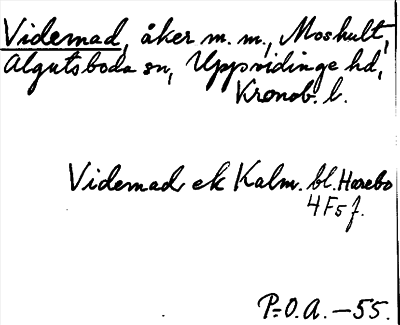 Videmad, åker m.m., Moshult,
Algutsboda sn, Uppvidinge hd,
Kronob. l.
Videmad ek Kalm. bl. Harebo
4 F5 f.
P.O.A. – 55.